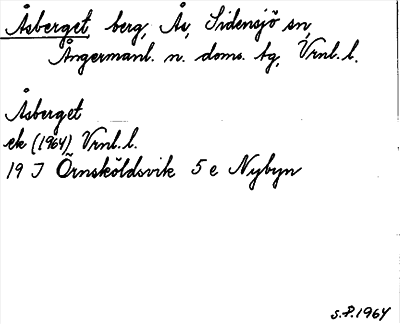 Åsberget berg, Ås, Sidensjö sn,
Ångermanl. n. doms. tg, Vrnl. l.
Åsberget
ek (1964) Vrnl. l.
19 J Örnsköldsvik 5 e Nybyn
s. P. 1964